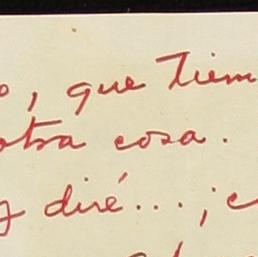 , que tiem
otra cosa.
y diré...; c